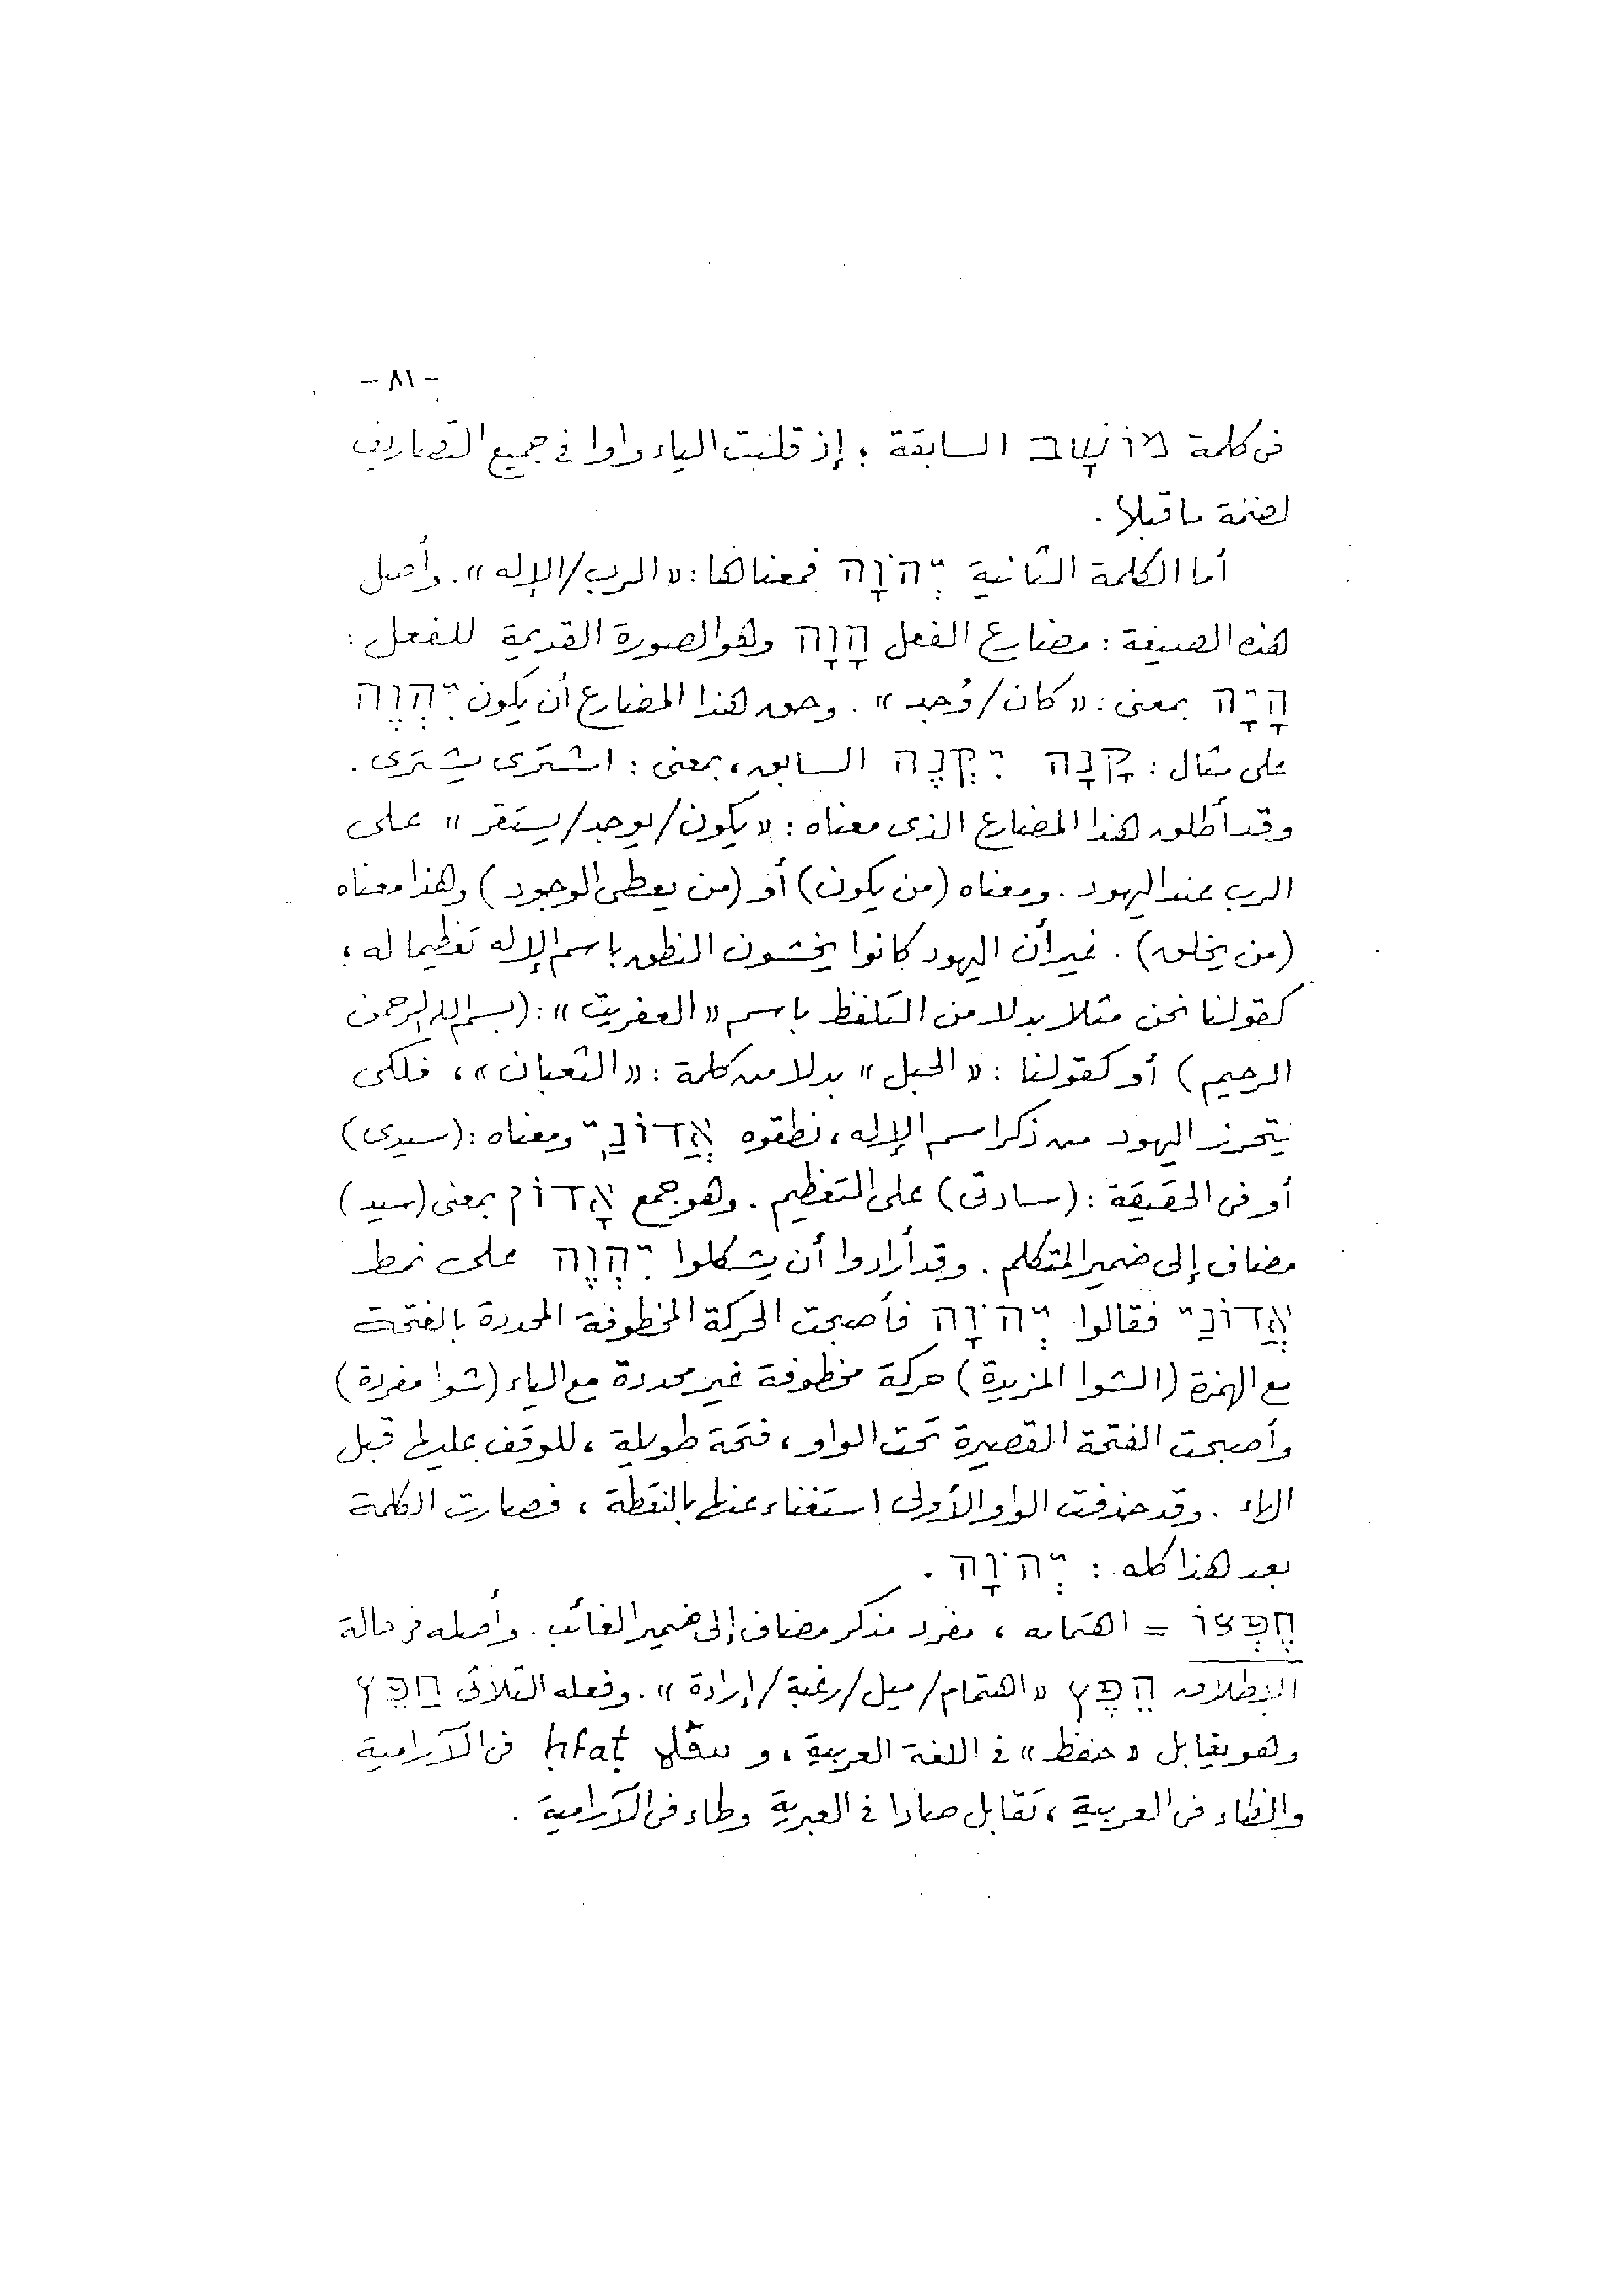 - ٨١ -
فى كلمة מוֹשָׁב السابقة ؛ إذ قلبت الياء واوا فى جميع التصاريف
لضمة ما قبلها .
أما الكلمة الثانية יְהֹוָה فمعناها : «الرب/الإله» . وأصل
هذه الصيغة : مضارع الفعل הָוָה وهو الصورة القديمة للفعل :
הָיָה بمعنى : «كان/وُجد» . وحق هذا المضارع أن يكون יִהְוֶה
على مثال : קָנָה יִקְנֶה السابق ، بمعنى : اشترى يشترى .
وقد أطلق هذا المضارع الذى معناه : «يكون/يوجد/يستقر» على
الرب عند اليهود . ومعناه (من يكون) أو (من يعطى الوجود) وهذا معناه
(من يخلق) . غير أن اليهود كانوا يخشون النطق باسم الإله تعظيما له ؛
كقولنا نحن مثلا بدلا من التلفظ باسم «العفريت» : (بسم الله الرحمن
الرحيم) أو كقولنا : «الحبل» بدلا من كلمة : «الثعبان» ، فلكى
يتحرز اليهود من ذكر اسم الإله ، نطقوه אֲדוֹנַי ومعناه : (سيدى)
أو فى الحقيقة : (سادتى) على التعظيم . وهو جمع אָדוֹן بمعنى (سيد)
مضاف إلى ضمير المتكلم . وقد أرادوا أن يشكلوا יִהְוֶה على نمط
אֲדוֹנַי فقالوا יְהֹוָה فأصبحت الحركة المخطوفة المحددة بالفتحة
مع الهمزة (الشوا المزيدة) حركة مخطوفة غير محددة مع الياء (شوا مفردة)
وأصبحت الفتحة القصيرة تحت الواو ، فتحة طويلة ، للوقف عليها قبل
الهاء . وقد حذفت الواو الأولى استغناء عنها بالنقطة ، فصارت الكلمة
بعد هذا كله : יְהֹוָה .
חֶפְצוֹ = اهتمامه ، مفرد مذكر مضاف إلى ضمير الغائب . وأصله فى حالة
الإطلاق חֵפֶץ «اهتمام/ميل/رغبة/إرادة» . وفعله الثلاثى חָפֵץ
وهو يقابل «حفظ» فى اللغة العربية ، و ḥfaṭ فى الآرامية
والظاء فى العربية ، تقابل صادا فى العبرية وطاء فى الآرامية .